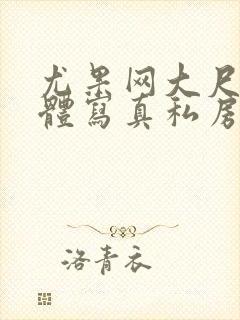 尤果网大尺
體寫真私房
洛青衣